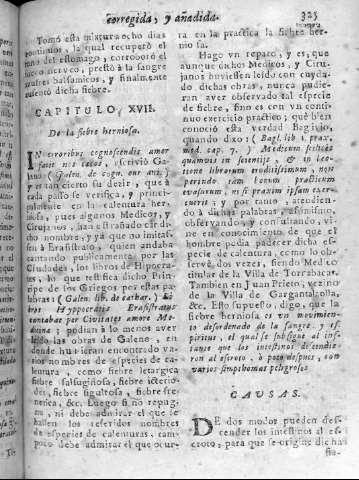 corregida, y añadida.
325
Tomó esta mixtura ocho dias
continuos, la qual recuperó el
tono del estomago, corroboró el
suco nerveo, prestó à la sangre
balsamicos, y finalmente
ausentó dicha fiebre.
CAPITULO XVII.
De la fiebre herniosa.
IN erroribus cognoscendis amor
facit nos cæcos, escrivió Ga-
leno (Galen. de cogn. cur. ani.)
y es tan cierto su decir, que à
cada passo se verifica, y princi-
palmente en la calentura her-
niosa, pues algunos Medicos, y
Cirujanos, han estrañado dicho
nombre, y yà que no imitas-
se à Erasistrato, quien andaba
cantando publicamente por las
Ciudades, los libros de Hipocra-
tes, lo que testifica dicho Prin-
cipe de los Griegos por estas pa-
labras: (Galen. lib. de cathar.)
libros Hyppocratis Erasistratus
cantabat per Civitates amore Me-
dicina; podian à lo menos aver
leido las obras de Galeno, en
donde huvieran encontrado va-
rios nombres de especies de ca-
lentura, como fiebre letargica
fiebre salsuginosa, fiebre icterio-
des, fiebre singultosa, fiebre
&c. Luego si no repug-
na, ni debe admirar el que se
hallen los referidos nombres
de especies de calenturas, tam-
poco debe admirar el que ocur-
ra en la practica la fiebre her-
niosa.
Hago un reparo, y es, que
aunque dichos Medicos, y Ciru-
janos huviessen leido con cuyda-
do dichas obras, nunca pudie-
ran aver observado tal especie
de fiebre, sino es con un conti-
nuo exercicio practico; què bien
conoció esta verdad Baglivio,
quando dixo: (Bagl. lib. 1. prax.
med. cap. 7.) Medicum felicès
quamvis in scientijs, & in lec-
tione librorum eruditissimum, non
perinde tam bonum practicum
evasurum, ni si praxim ipsam exer-
cuerit; y por tanto, atendien-
do à dichas palabras, assimismo,
observando, y consultando, vi-
ne en conocimiento de que el
hombre podia padecer dicha es-
pecie de calentura, como lo ob-
servè, dos vezes, siendo Medico
titular de la Villa de Torrabacas.
Tambien en Juan Prieto, vezino
de la Villa de Gargantalolla,
&c. Esto supuesto, digo, que la
fiebre herniosa es un movimien-
to desordenado de la sangre, y es-
piritus, el qual se subsigue al ins-
tante que los intestinos descendie-
ron al escroto, ò poco despues, con
varios simpthomas peligrosos.
CAUSAS.
DE dos modos pueden des-
cender los intestinos al es-
croto; para que se origine dicha